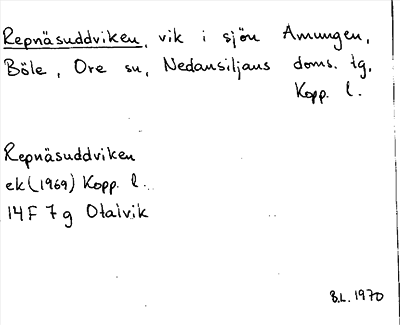 Repnäsuddviken, vik i sjön Amungen,
Böle, Ore sn, Nedansiljans doms. tg,
Kopp. l.
Repnäsuddviken
ek (1969) Kopp. l.
14F 7g Otalvik
B.L. 1970